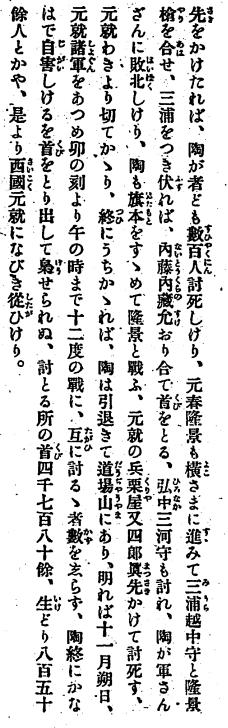 先をかけたれば、陶が者ども數百人討死しけり、元春隆景も横さまに進みて三浦越中守と隆景
槍を合せ、三浦をつき伏れば、内藤内藏允おり合て首をとる、弘中三河守も討れ、陶が軍さん
ざんに敗北しけり、陶も旗本をすゝめて隆景と戰ふ、元就の兵粟屋又四郎眞先かけて討死す、
元就わきより切てかゝり、終にうちかゝれば、陶は引退きて道場山にあり、明れば十一月朔日、
元就諸軍をあつめ卯の刻より午の時まで十二度の戰に、互に討るゝ者數を玄らず、陶終にかな
はで自害しけるを首をとり出して梟せられぬ、討とる所の首四千七百八十餘、生どり八百五十
餘人とかや、是より西國元就になびき從ひけり。